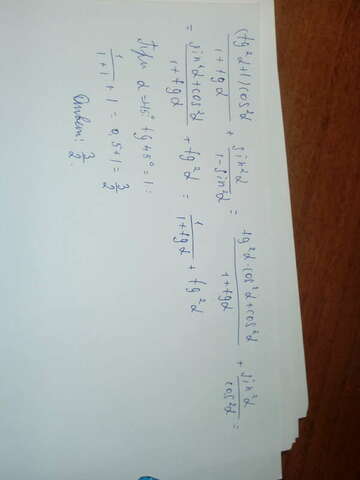 (tg²α+1)cos²α / 1+tgα + sin²α / 1-sin²α = tg²α·cos²α+cos²α / 1+tgα + sin²α / cos²α =
= sin²α+cos²α / 1+tgα + tg²α = 1 / 1+tgα + tg²α
При α=45° tg45°=1:
1 / 1+1 + 1 = 0,5+1 = 3/2
Ответ: 3/2